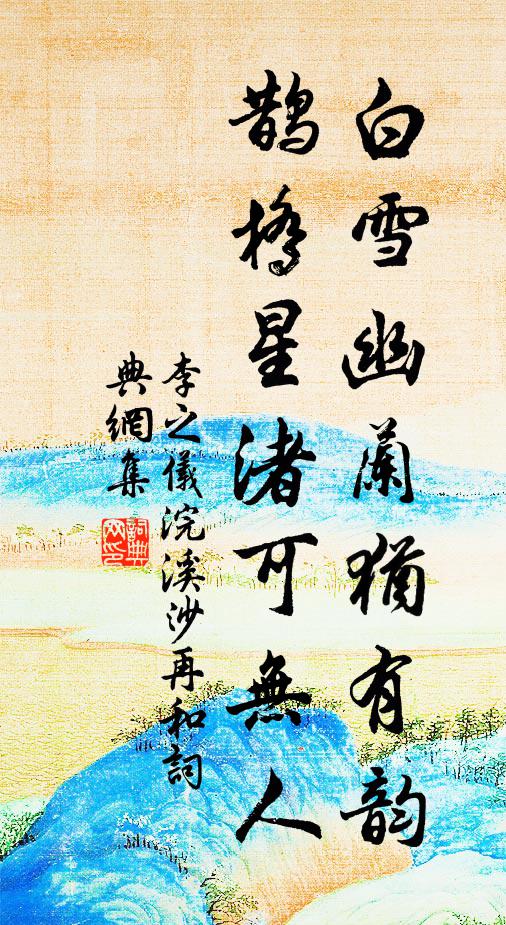 白雪幽蘭猶有韵
鵲橋星渚可無人
李之儀浣溪沙再和詞
典網集